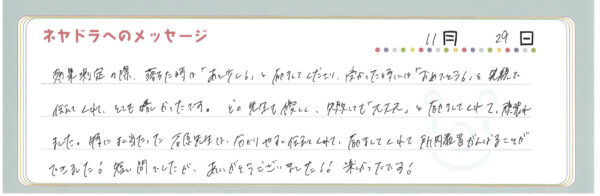 ネヤドラへのメッセージ
11月 29日
効果測定の際、落ちた時は「あと少し」と励ましてくださり、受かった時には「おめでとう」と笑顔で
伝えてくれて、とても嬉しかったです。どの先生も優しく、失敗しても「大丈夫」と励ましてくれて、頑張れ
ました。特に担当だった石原先生は、分かりやすく伝えてくれて、励ましてくれて所内教習がんばることが
できました！短い間でしたが、ありがとうございました!! 楽かったです!